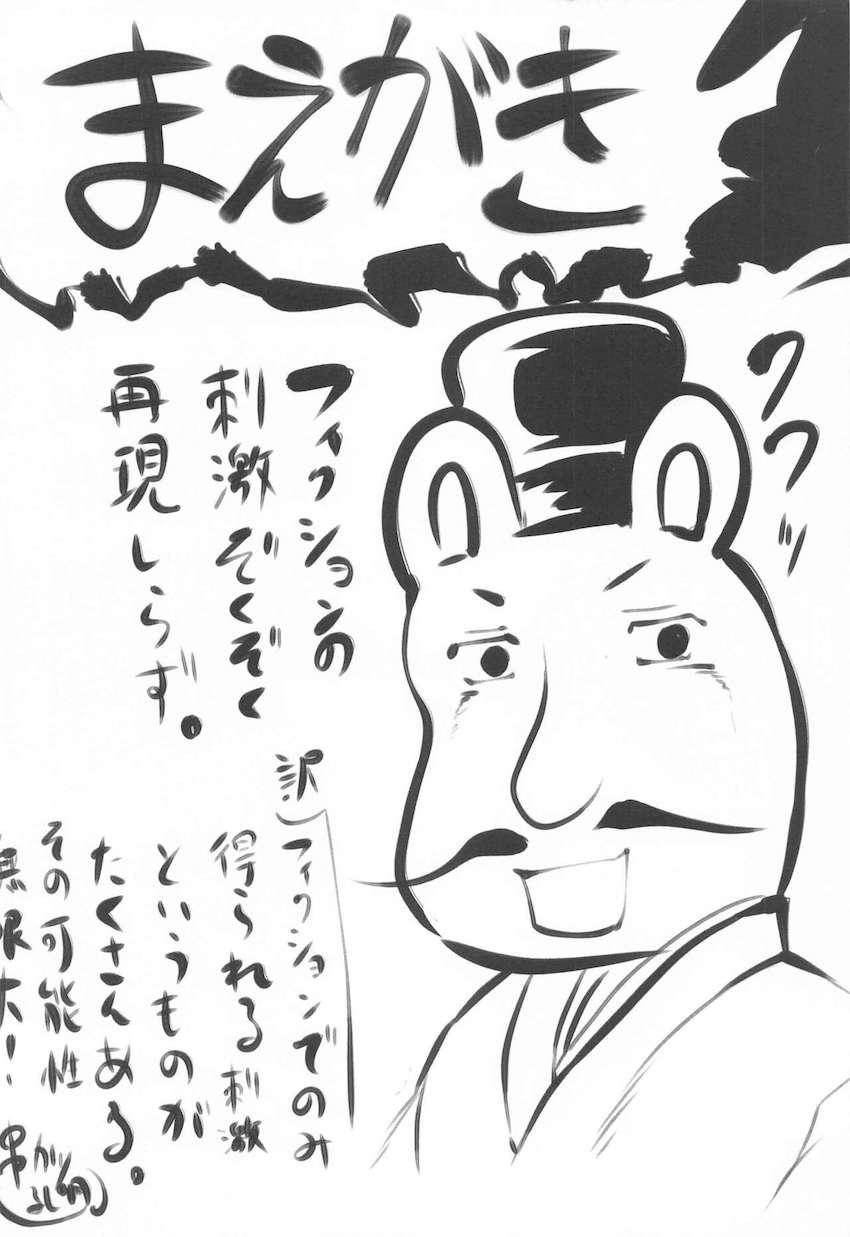 まえがき
ワフッ
フィクションの
刺激ぞくぞく
再現しらず。
訳)フィクションでのみ
得られる刺激
というものが
たくさんある。
その可能性
無限大!